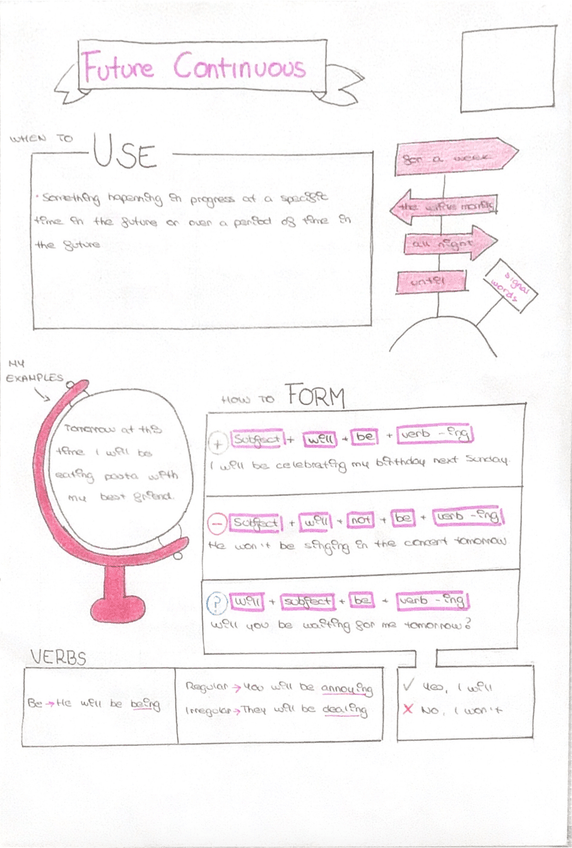 Future Continuous
WHEN TO USE
· Something happening in progress at a specific
time in the future or over a period of time in
the future
for a week
the whole morning
all night
until
signal words
MY
EXAMPLES
Tomorrow at this
time I will be
eating pasta with
my best friend.
HOW TO FORM
+ Subject + will + be + verb -ing
I will be celebrating my birthday next Sunday.
- Subject + will + not + be + verb -ing
He won't be singing in the concert tomorrow
? will + subject + be + verb -ing
Will you be waiting for me tomorrow?
VERBS
Be → He will be being
Regular → You will be annoying
Irregular → They will be dealing
✓ Yes, I will
✗ No, I won't